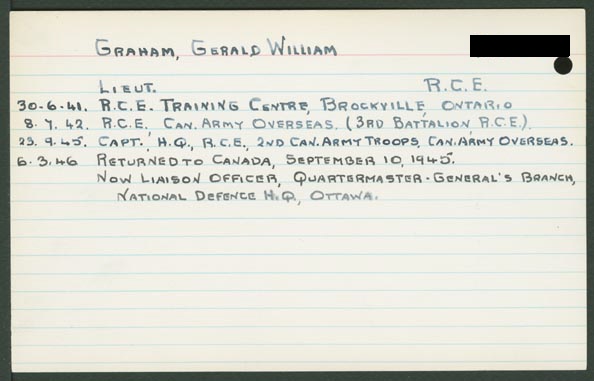 GRAHAM, GERALD WILLIAM
LIEUT. R.C.E.
30.6.41. R.C.E. TRAINING CENTRE, BROCKVILLE, ONTARIO
8.7.42. R.C.E., CAN. ARMY OVERSEAS. (3RD BATTALION, R.C.E.).
25.9.45. CAPT., H.Q., R.C.E., 2ND CAN. ARMY TROOPS, CAN. ARMY OVERSEAS.
6.3.46 RETURNED TO CANADA, SEPTEMBER 10, 1945.
NOW LIAISON OFFICER, QUARTERMASTER-GENERAL'S BRANCH,
NATIONAL DEFENCE H.Q., OTTAWA.